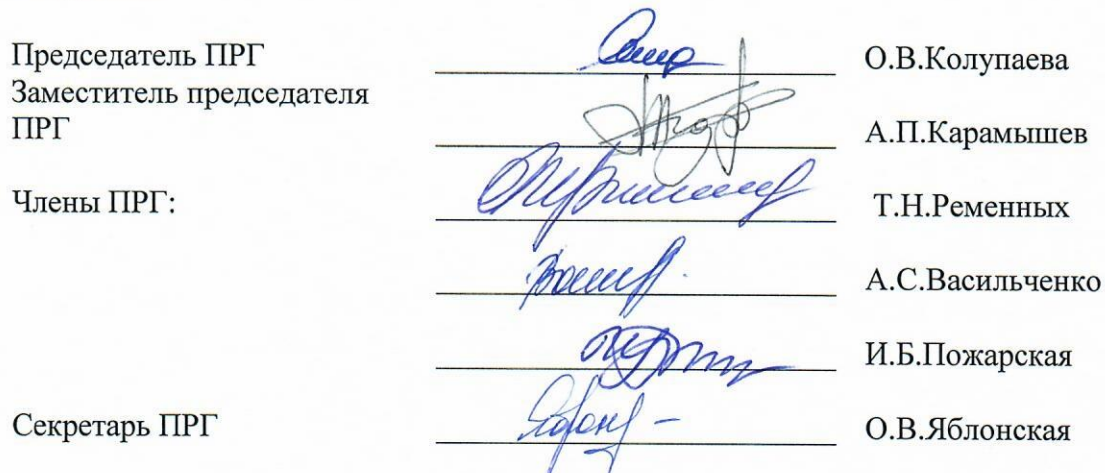 Председатель ПРГ О.В.Колупаева
Заместитель председателя
ПРГ А.П.Карамышев
Члены ПРГ: Т.Н.Ременных
А.С.Васильченко
И.Б.Пожарская
Секретарь ПРГ О.В.Яблонская